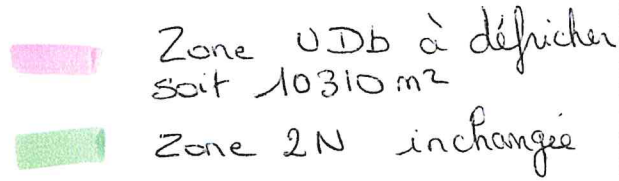 Zone UDb à défricher
soit 10310 m2
Zone 2N inchangée